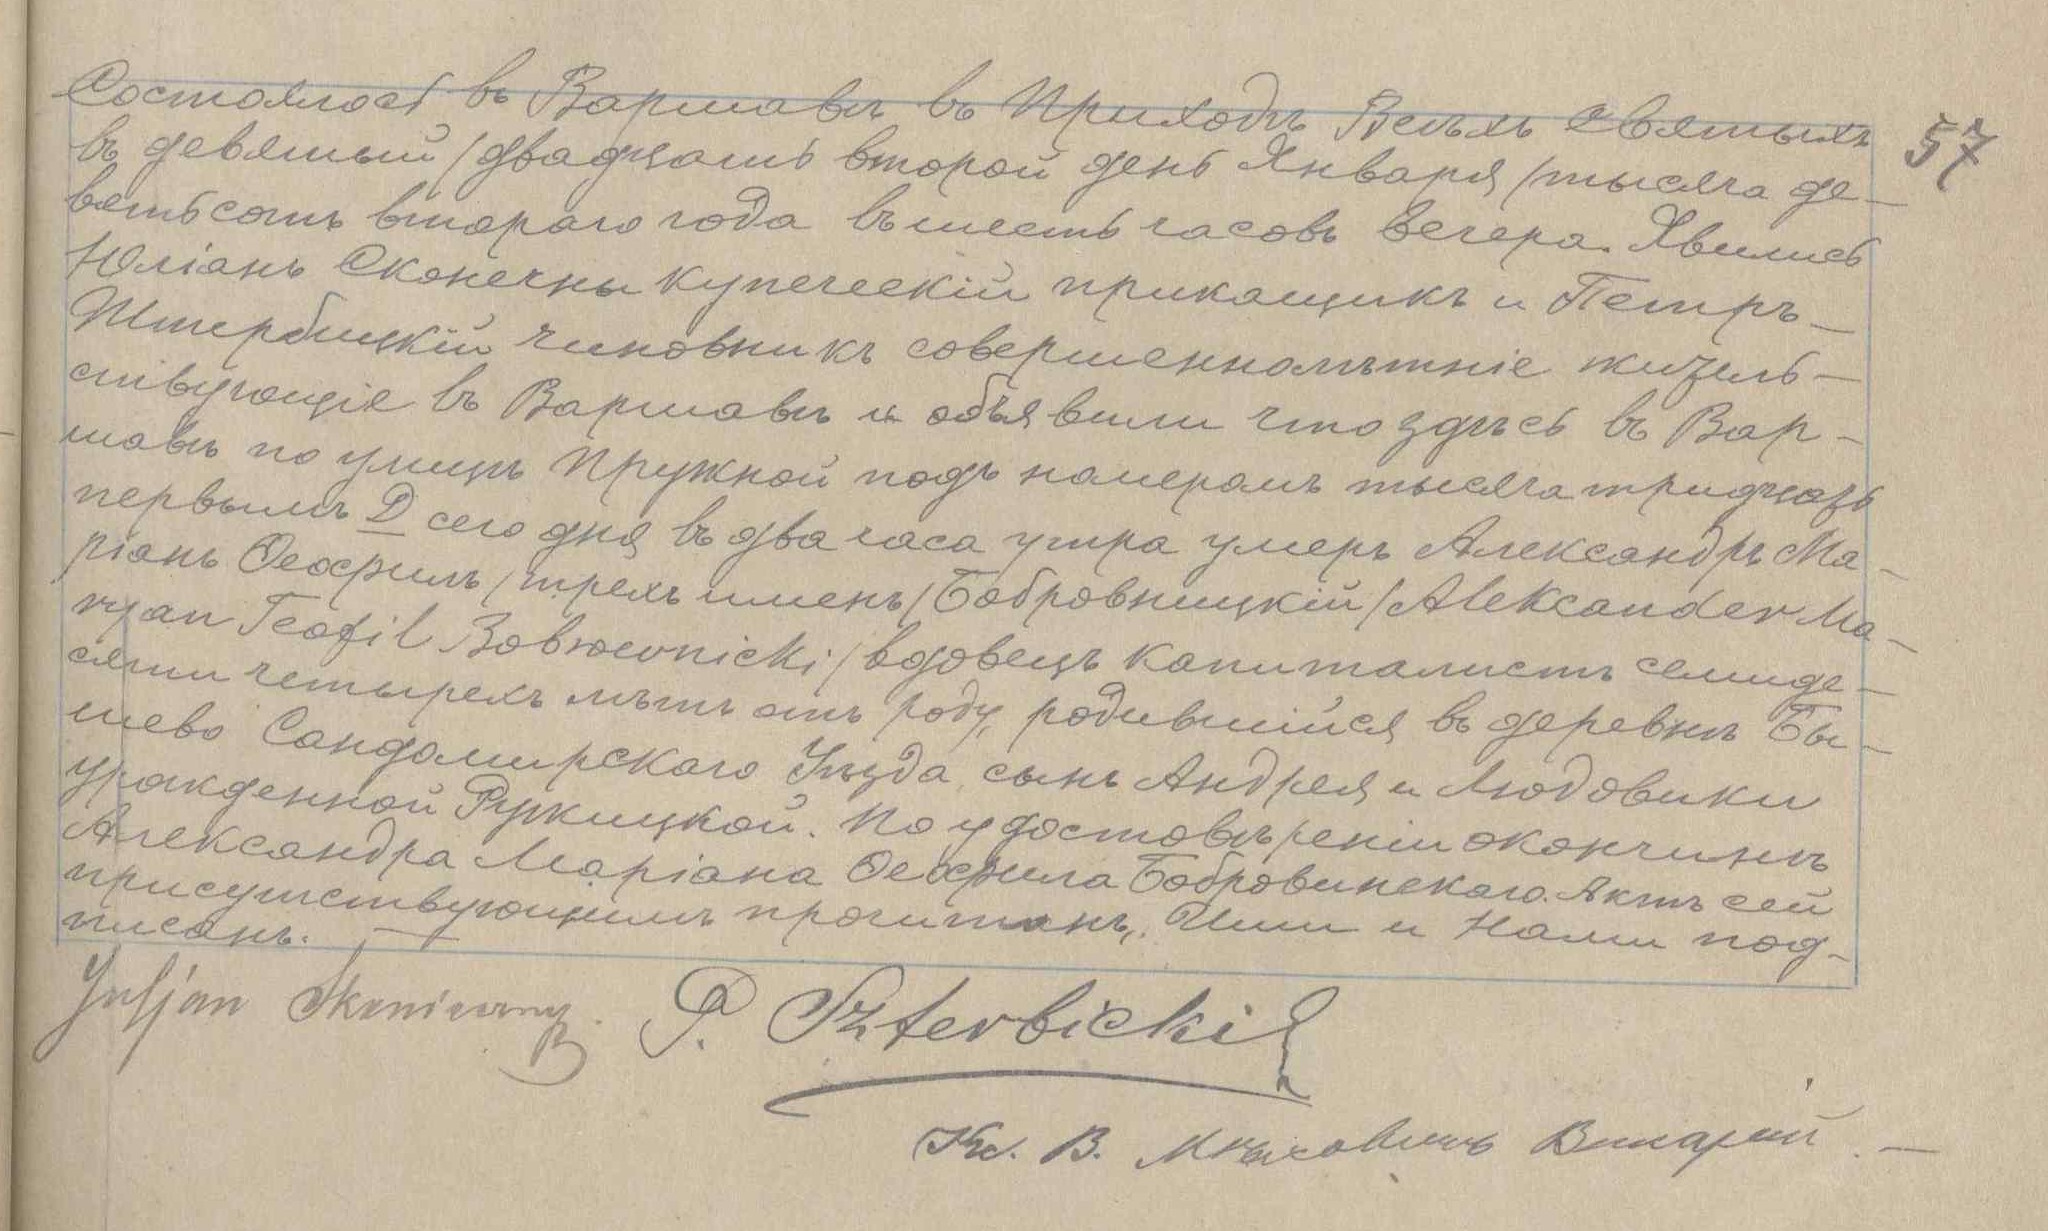 Состоялось въ Варшавѣ въ Приходѣ Всѣхъ Святыхъ
57
въ девятый /двадцать второй день Января /тысяча де-
вятьсотъ второго года въ шесть часовъ вечера. Явились
Юліанъ Сконечны купеческій прикащикъ и Петръ
Штербицкій чиновникъ совершеннолѣтніе житель-
ствующіе въ Варшавѣ и объявили что здѣсь въ Вар-
шавѣ по улицѣ Пружной подъ номеромъ тысяча тридцать
первымъ D сего дня въ два часа утра умеръ Александръ Ма-
ріанъ Ѳеофилъ /трехъ именъ/ Бобровницкій /Aleksander Ma-
ryan Teofil Bobrownicki/ вдовецъ капиталистъ семиде-
сяти четырехъ лѣтъ отъ роду, родившійся въ деревнѣ Бы-
шево Сандомирскаго Уѣзда, сынъ Андрея и Людовики
урожденной Ружицкой. По удостовѣреніи окончинѣ
Александра Маріана Ѳеофила Бобровинскаго. Актъ сей
присутствующимъ прочитанъ, Ими и Нами под-
писанъ.
Juljan Skonieczny P. Szterbicki
Кс. В. Викарій